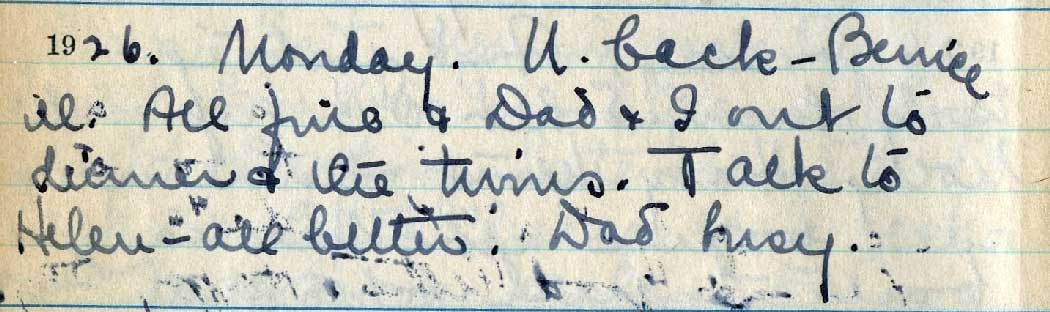 1926. Monday. U. back - Bernice
ill. All fine & Dad & I out to
dinner & the twins. Talk to
Helen - all better. Dad busy.